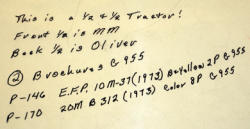 This is a 1/2 & 1/2 Tractor!
Front 1/2 is MM
Back 1/2 is Oliver
② Brochures G955
P-146 E.F.P. 10M-37 (1973) B&Yellow 2P G955
P-170 20M B312 (1973) Color 8P G955